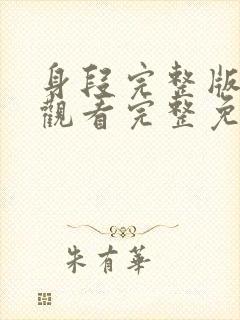 身段完整版
觀看完整免
朱有華